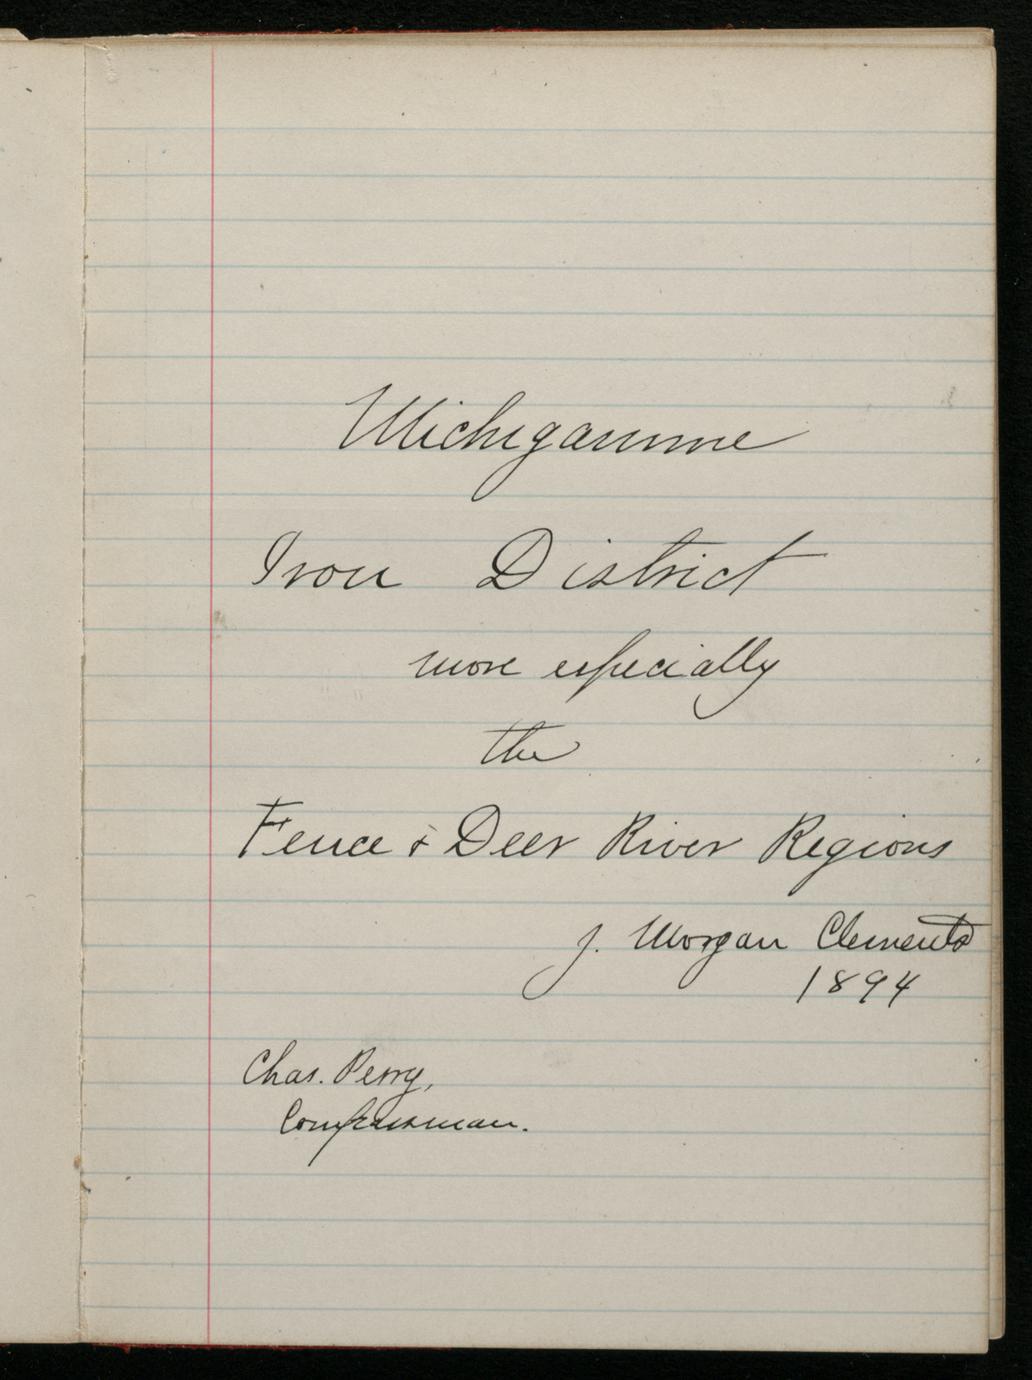 Michigamme
Iron District
more especially
the
Fence & Deer River Regions
J. Morgan Clements
1894
Chas. Perry,
Compassman.